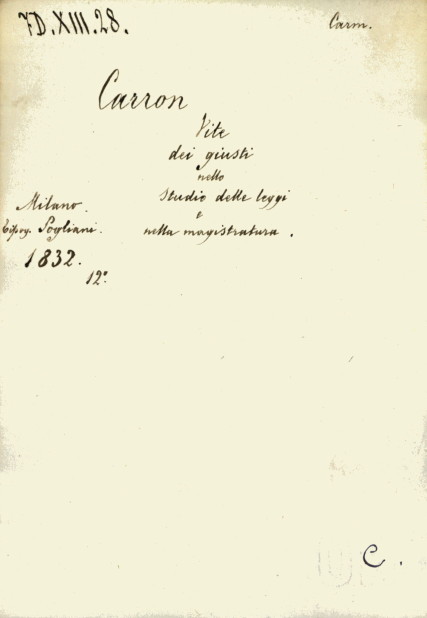 7D.XIII.28.
Carm.
Carron
Vite
dei giusti
nello
studio delle leggi
e
nella magistratura.
Milano.
Tipog. Pogliani.
1832.
12°.
C.